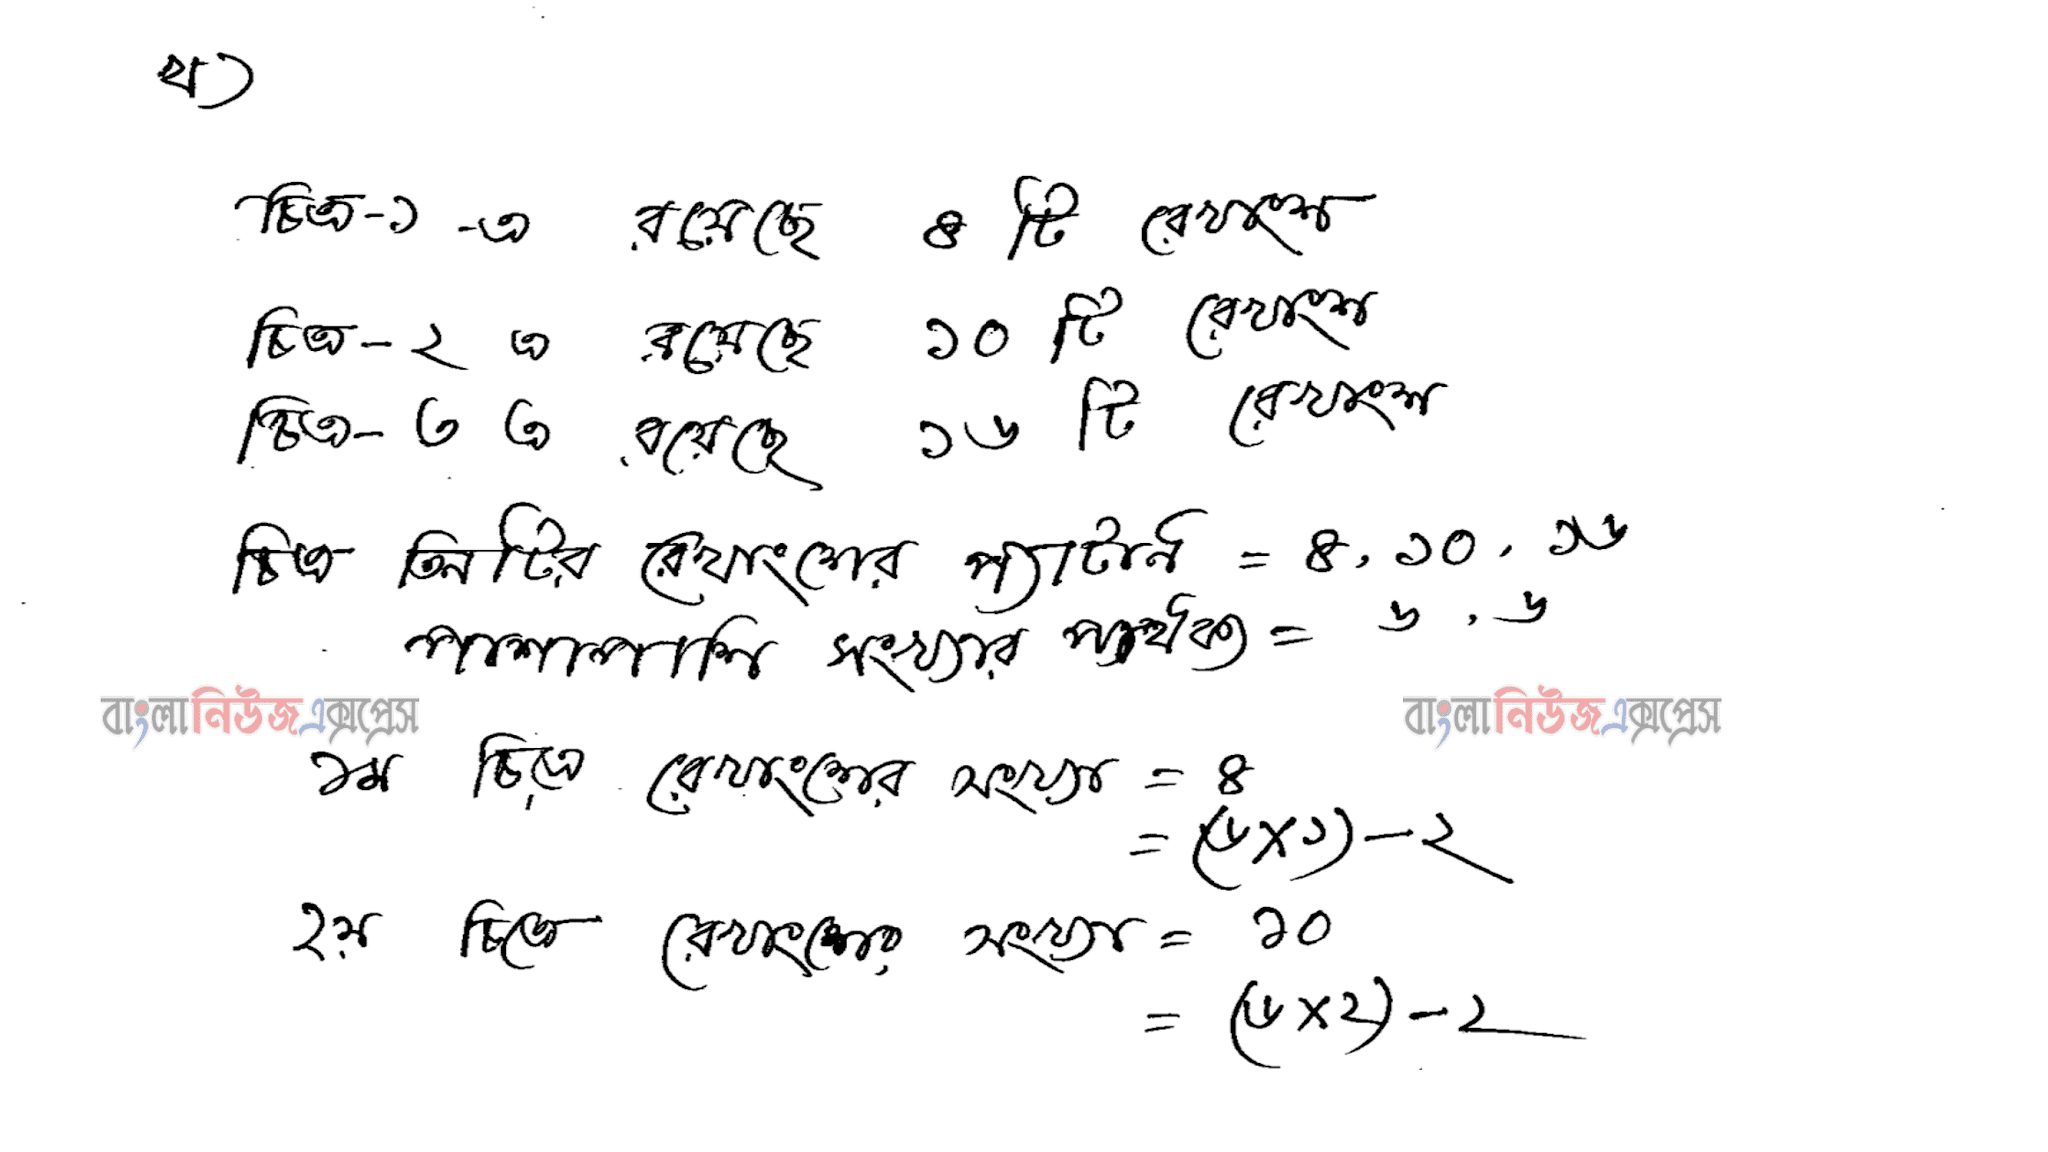 খ)
চিত্র-১ -এ রয়েছে ৪ টি রেখাংশ
চিত্র-২ এ রয়েছে ১০ টি রেখাংশ
চিত্র-৩ এ রয়েছে ১৬ টি রেখাংশ
চিত্র তিনটির রেখাংশের প্যাটার্ন = ৪, ১০, ১৬
পাশাপাশি সংখ্যার পার্থক্য = ৬, ৬
বাংলা নিউজ এক্সপ্রেস বাংলা নিউজ এক্সপ্রেস
১ম চিত্রে রেখাংশের সংখ্যা = ৪
= (৬×১)-২
২য় চিত্রে রেখাংশের সংখ্যা = ১০
= (৬×২)-২